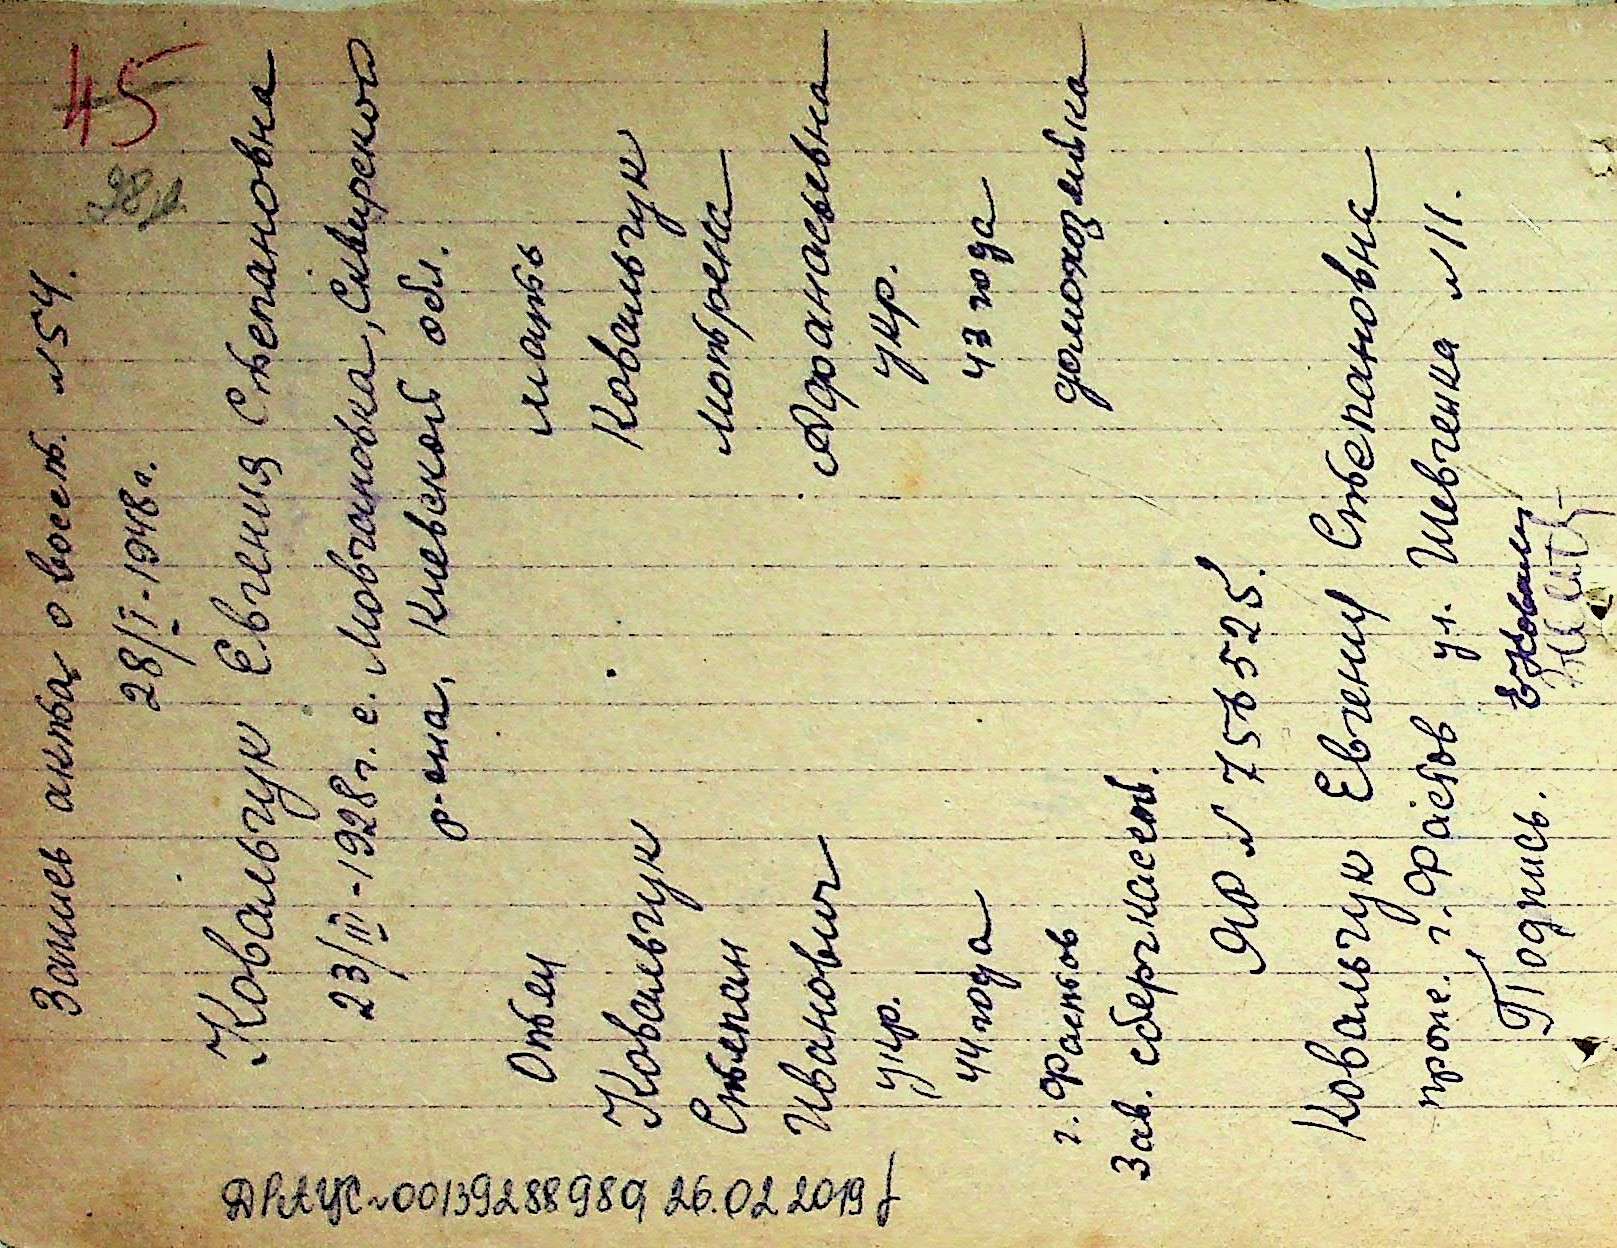 45
98г.
Запись акта о восст. №54.
28/I-1948 г.
Ковальчук Евгения Степановна
23/III-1928 г. с. Мовчановка, Сквирского
р-она, Киевской обл.
Отец мать
Ковальчук Ковальчук
Степан Мотрена
Иванович Афанасьевна
укр. укр.
44 года 43 года
г. Фастов домохозяйка
Зав. сберткасой.
ЯР № 756525.
Ковальчук Евгении Степановна
прож. г. Фастов ул. Шевченка №11.
Подпись. ЕКоваль
ДРАЦС~00139288989 26.02 2019